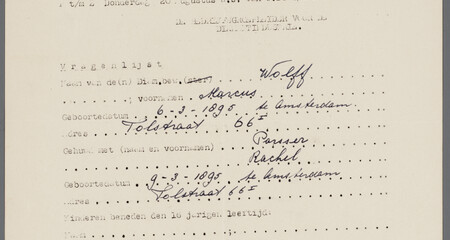 V r a g e n l i j s t
Naam van de(n) Diam.bew.(ster) Wolff
" ; voornamen Marcus
Geboortedatum 6-3-1895 te Amsterdam
Adres Tolstraat 66 I
Gehuwd met (naam en voornamen) Porsser
Rachel
Geboortedatum 9-3-1895 te Amsterdam
Adres Tolstraat 66 I
Kinderen beneden den 16 jarigen leeftijd:
Naam